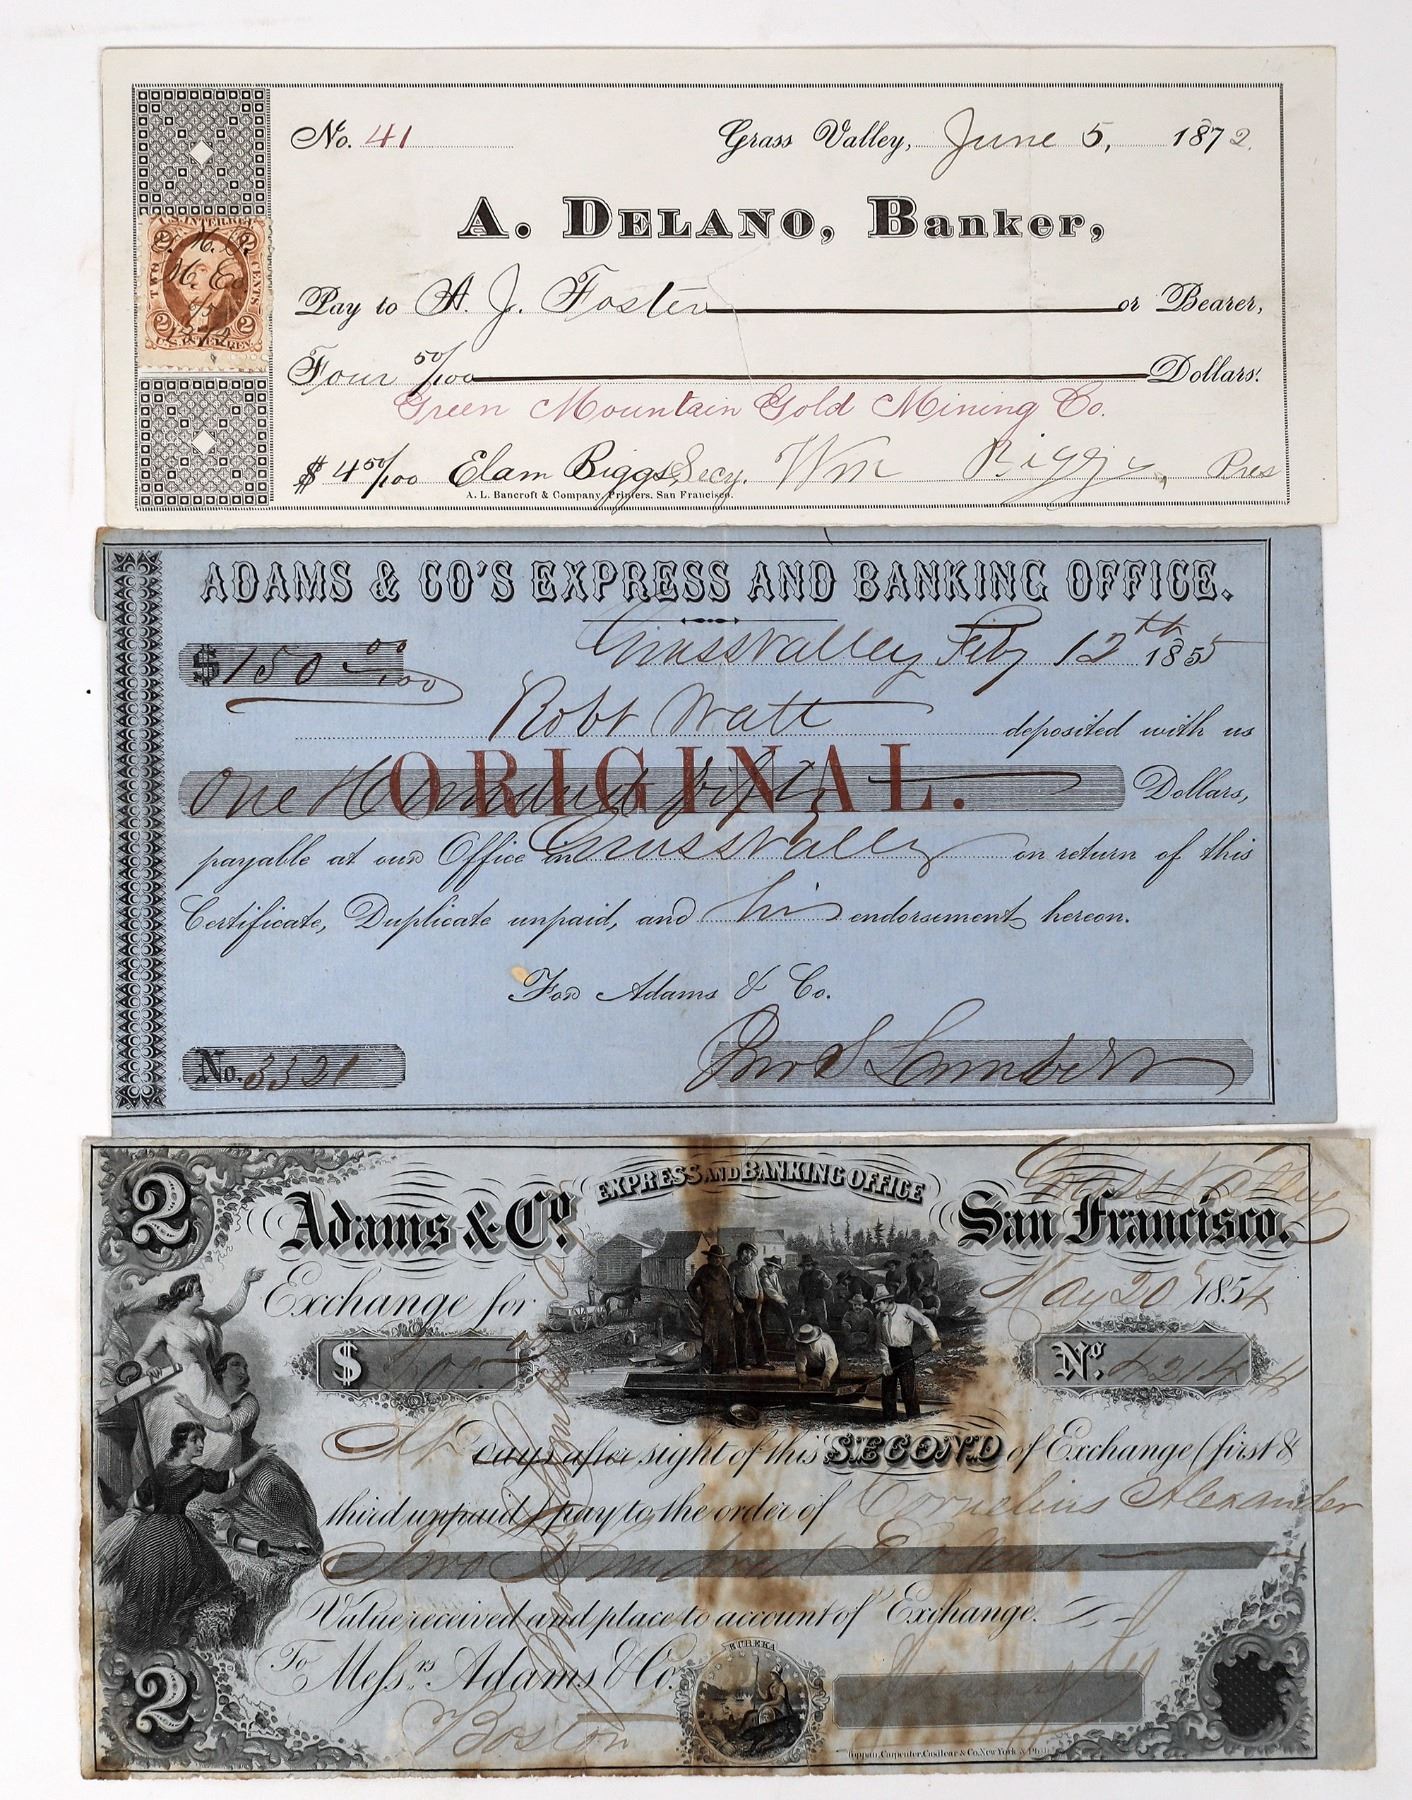 No. 41 Grass Valley, June 5, 1872.
A. DELANO, Banker,
U.S. INTER. REV.
2 2
TWO CENTS
2 2
1872
U.S. INTER. REV.
Pay to A. J. Foster or Bearer,
Four 50/100 Dollars.
Green Mountain Gold Mining Co.
$ 4 50/100 Elam Biggs, Secy. Wm Biggs, Pres
A. L. Bancroft & Company, Printers. San Francisco.
ADAMS & CO'S EXPRESS AND BANKING OFFICE.
$ 150 00/100 Grass Valley Feby 12th 1855
Robt Watt deposited with us
ORIGINAL.
One Hundred fifty Dollars,
payable at our Office in Grass Valley on return of this
Certificate, Duplicate unpaid, and his endorsement hereon.
For Adams & Co.
No. 3321 Jno S Lambert
2 EXPRESS AND BANKING OFFICE Grass Valley
Adams & Co. San Francisco.
Exchange for May 20 1854
$ 200 No. 42144
At days after sight of this SECOND of Exchange (first &
third unpaid) pay to the order of Cornelius Alexander
Two Hundred Dollars
Value received and place to account of Exchange.
To Messrs. Adams & Co.
Boston
EUREKA
2
Toppan, Carpenter, Casilear & Co. New York & Phil